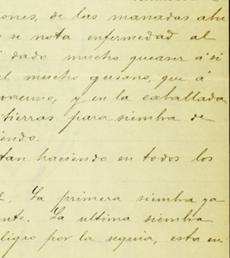 ones, de las manadas abu
o se nota enfermedad al
dado mucho que aser á si
el mucho gusano, que á
vacuno, y en la caballada
tierras para siembra de
iendo.
tan haciendo en todos los
La primera siembra ya
nte. La ultima siembra
ligro por la seguia, esta en